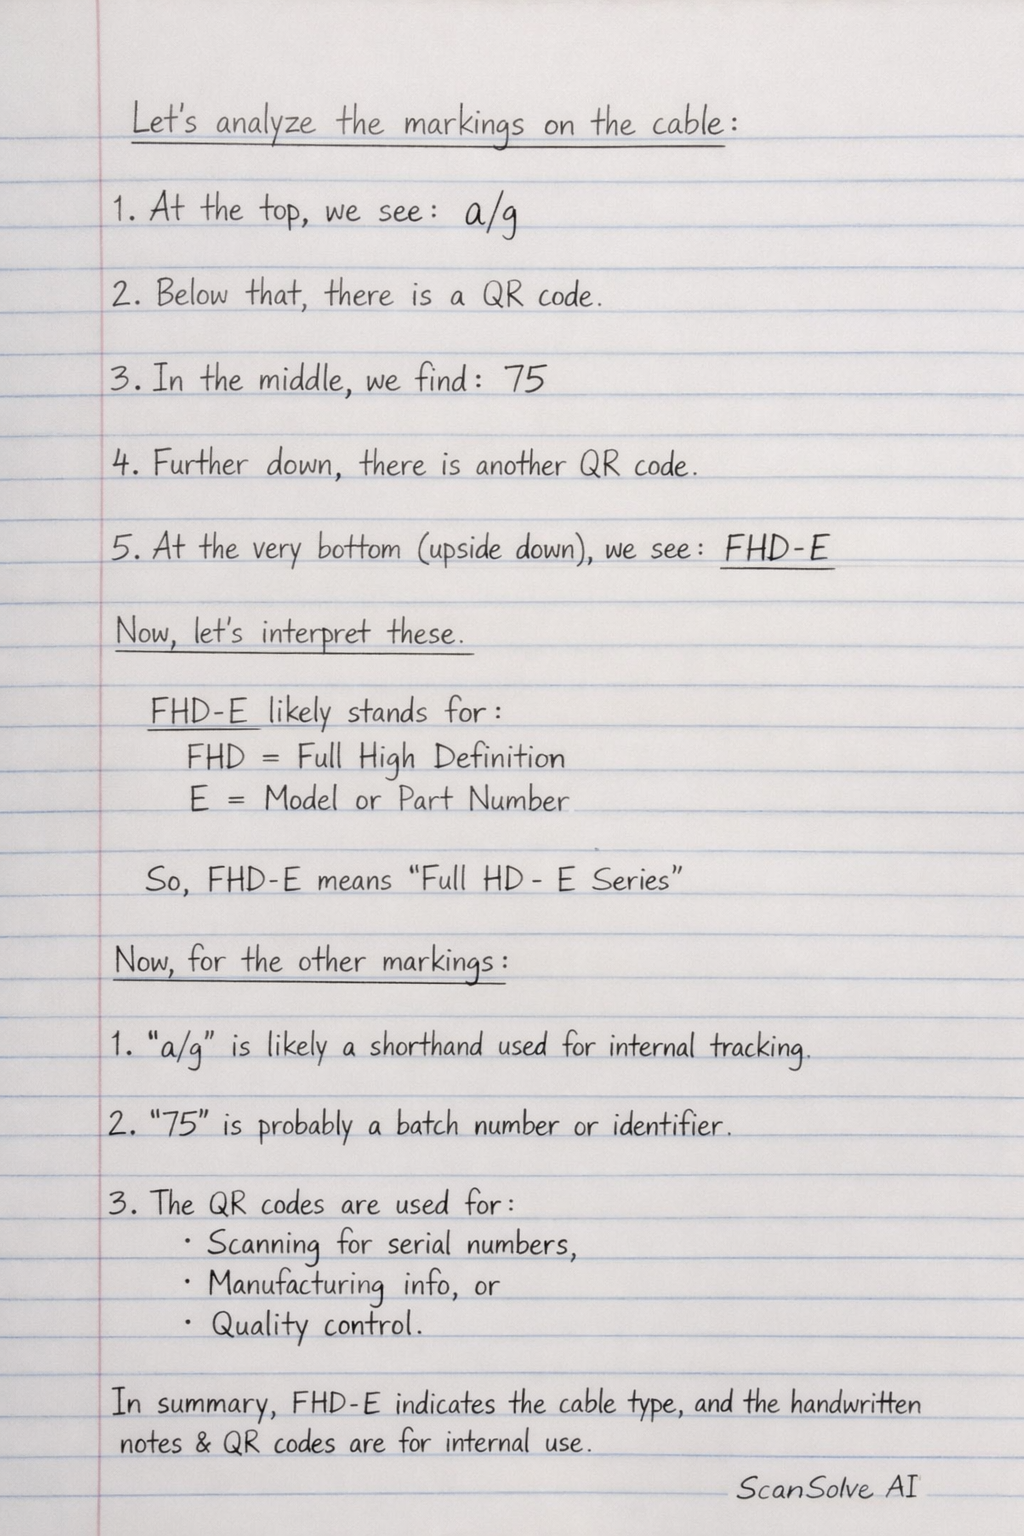 Let's analyze the markings on the cable:
1. At the top, we see: a/g
2. Below that, there is a QR code.
3. In the middle, we find: 75
4. Further down, there is another QR code.
5. At the very bottom (upside down), we see: FHD-E
Now, let's interpret these.
FHD-E likely stands for:
FHD = Full High Definition
E = Model or Part Number
So, FHD-E means "Full HD - E Series"
Now, for the other markings:
1. "a/g" is likely a shorthand used for internal tracking.
2. "75" is probably a batch number or identifier.
3. The QR codes are used for:
· Scanning for serial numbers,
· Manufacturing info, or
· Quality control.
In summary, FHD-E indicates the cable type, and the handwritten
notes & QR codes are for internal use.
ScanSolve AI